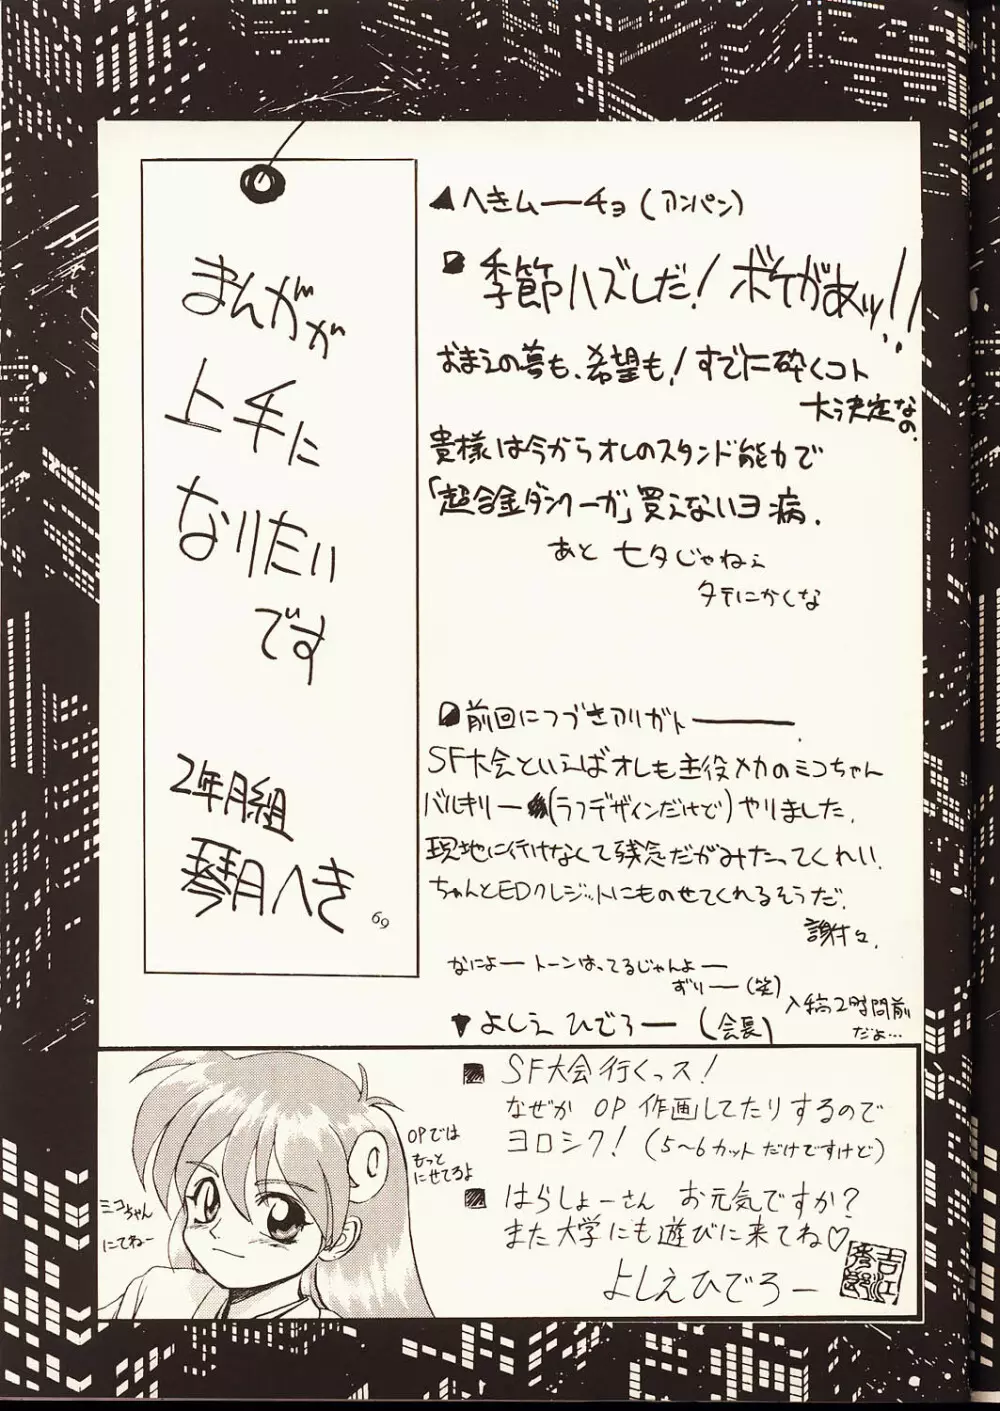 まんがが
上手に
なりたい
です
2年月組
琴月へき
69
▲へきムーチョ(アンパン)
季節ハズレだ!ボケがあッ!!
おまえの夢も、希望も!すでに砕くコト
大決定なの。
貴様は今からオレのスタンド能力で
「超合金ダンクーガ」買えないヨ病.
あと 七夕じゃねぇ
タテにかくな
前回につづきアリガトー.
SF大会といえばオレも主役メカのミコちゃん
バルキリー(ラフデザインだけど)やりました.
現地に行けなくて残念だがみたってくれい.
ちゃんとEDクレジットにものせてくれるそうだ.
謝々.
なによー トーンはってるじゃんよー
ずりー(笑)
入稿2時間前
だよ…
▼よしえ ひでろー (会長)
■ SF大会行くっス!
なぜか OP 作画してたりするので
ヨロシク! (5〜6カットだけですけど)
■ はらしょーさん お元気ですか?
また大学にも遊びに来てね♡
よしえひでろー
吉江
秀郎
OPでは
もっと
にせてろよ
ミコちゃん
にてねー